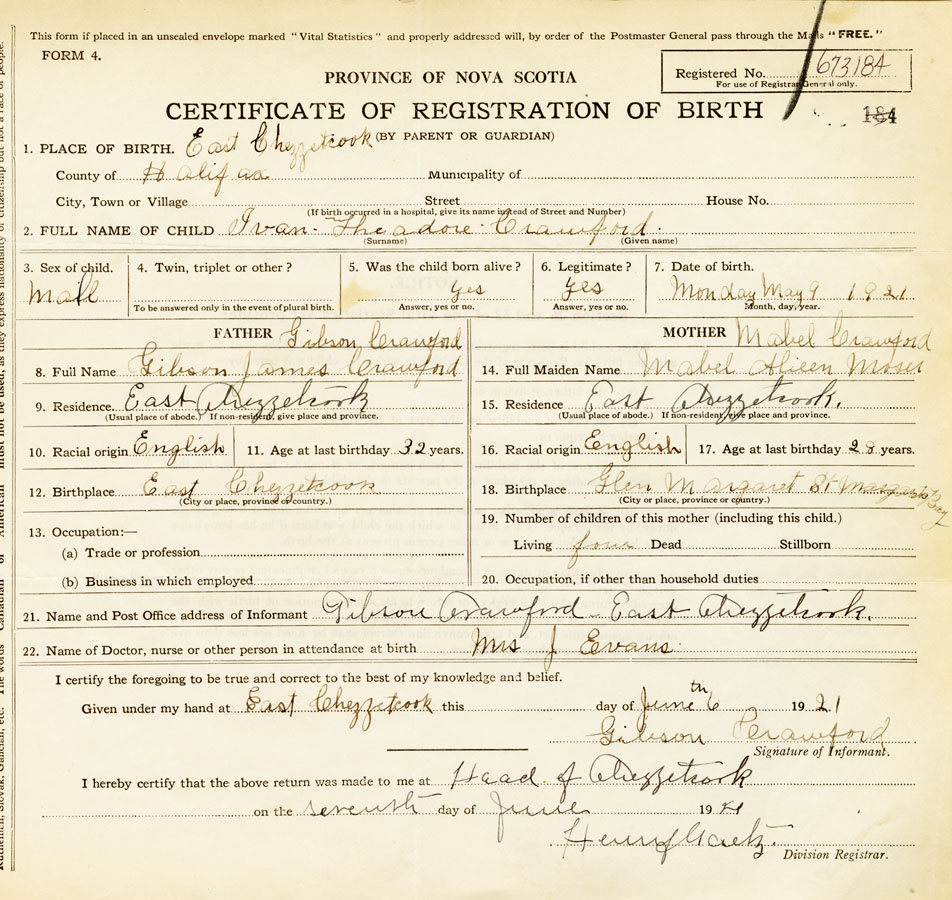 This form if placed in an unsealed envelope marked "Vital Statistics" and properly addressed will, by order of the Postmaster General pass through the Mails "FREE."
FORM 4.
PROVINCE OF NOVA SCOTIA
Registered No. 673184
For use of Registrar General only.
CERTIFICATE OF REGISTRATION OF BIRTH
184
(BY PARENT OR GUARDIAN)
1. PLACE OF BIRTH. East Chezzetcook
County of Halifax Municipality of
City, Town or Village Street House No.
(If birth occurred in a hospital, give its name instead of Street and Number)
2. FULL NAME OF CHILD Ivan Theadore Crawford
(Surname) (Given name)
3. Sex of child. 4. Twin, triplet or other? 5. Was the child born alive? 6. Legitimate? 7. Date of birth.
Mall yes yes Monday May 9 1921
To be answered only in the event of plural birth. Answer, yes or no. Answer, yes or no. Month, day, year.
FATHER Gibson Crawford
8. Full Name Gibson James Crawford
9. Residence. East Chezzetcook
(Usual place of abode.) If non-resident, give place and province.
10. Racial origin English 11. Age at last birthday 32 years.
12. Birthplace East Chezzetcook
(City or place, province or country.)
13. Occupation:—
(a) Trade or profession
(b) Business in which employed
MOTHER Mabel Crawford
14. Full Maiden Name Mabel Alieen Moser
15. Residence East Chezzetcook.
(Usual place of abode.) If non-resident, give place and province.
16. Racial origin English 17. Age at last birthday 28 years.
18. Birthplace Glen Margaret St Margarets Bay
(City or place, province or country.)
19. Number of children of this mother (including this child.)
Living four Dead Stillborn
20. Occupation, if other than household duties
21. Name and Post Office address of Informant Gibson Crawford - East Chezzetcook.
22. Name of Doctor, nurse or other person in attendance at birth Mrs J Evans
I certify the foregoing to be true and correct to the best of my knowledge and belief.
Given under my hand at East Chezzetcook this day of June 6th 1921
Gibson Crawford
Signature of Informant.
I hereby certify that the above return was made to me at Head of Chezzetcook
on the seventh day of June 1921
Henry Gaetz.
Division Registrar.